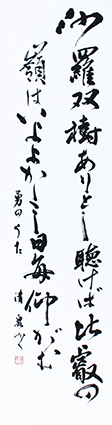 沙羅双樹ありとし聴けば比叡の
嶺はいよよかしこ日毎仰がむ
勇のうた